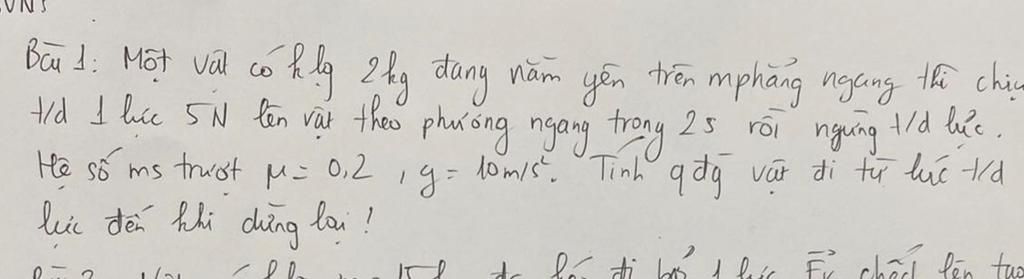 Bài 1: Một vật có klg 2kg đang nằm yên trên mphẳng ngang thì chịu
t/d 1 lực 5N lên vật theo phương ngang trong 2s rồi ngừng t/d lực.
Hệ số ms trượt μ = 0,2 , g = 10m/s². Tính qđg vật đi từ lúc t/d
lực đến khi dừng lại !